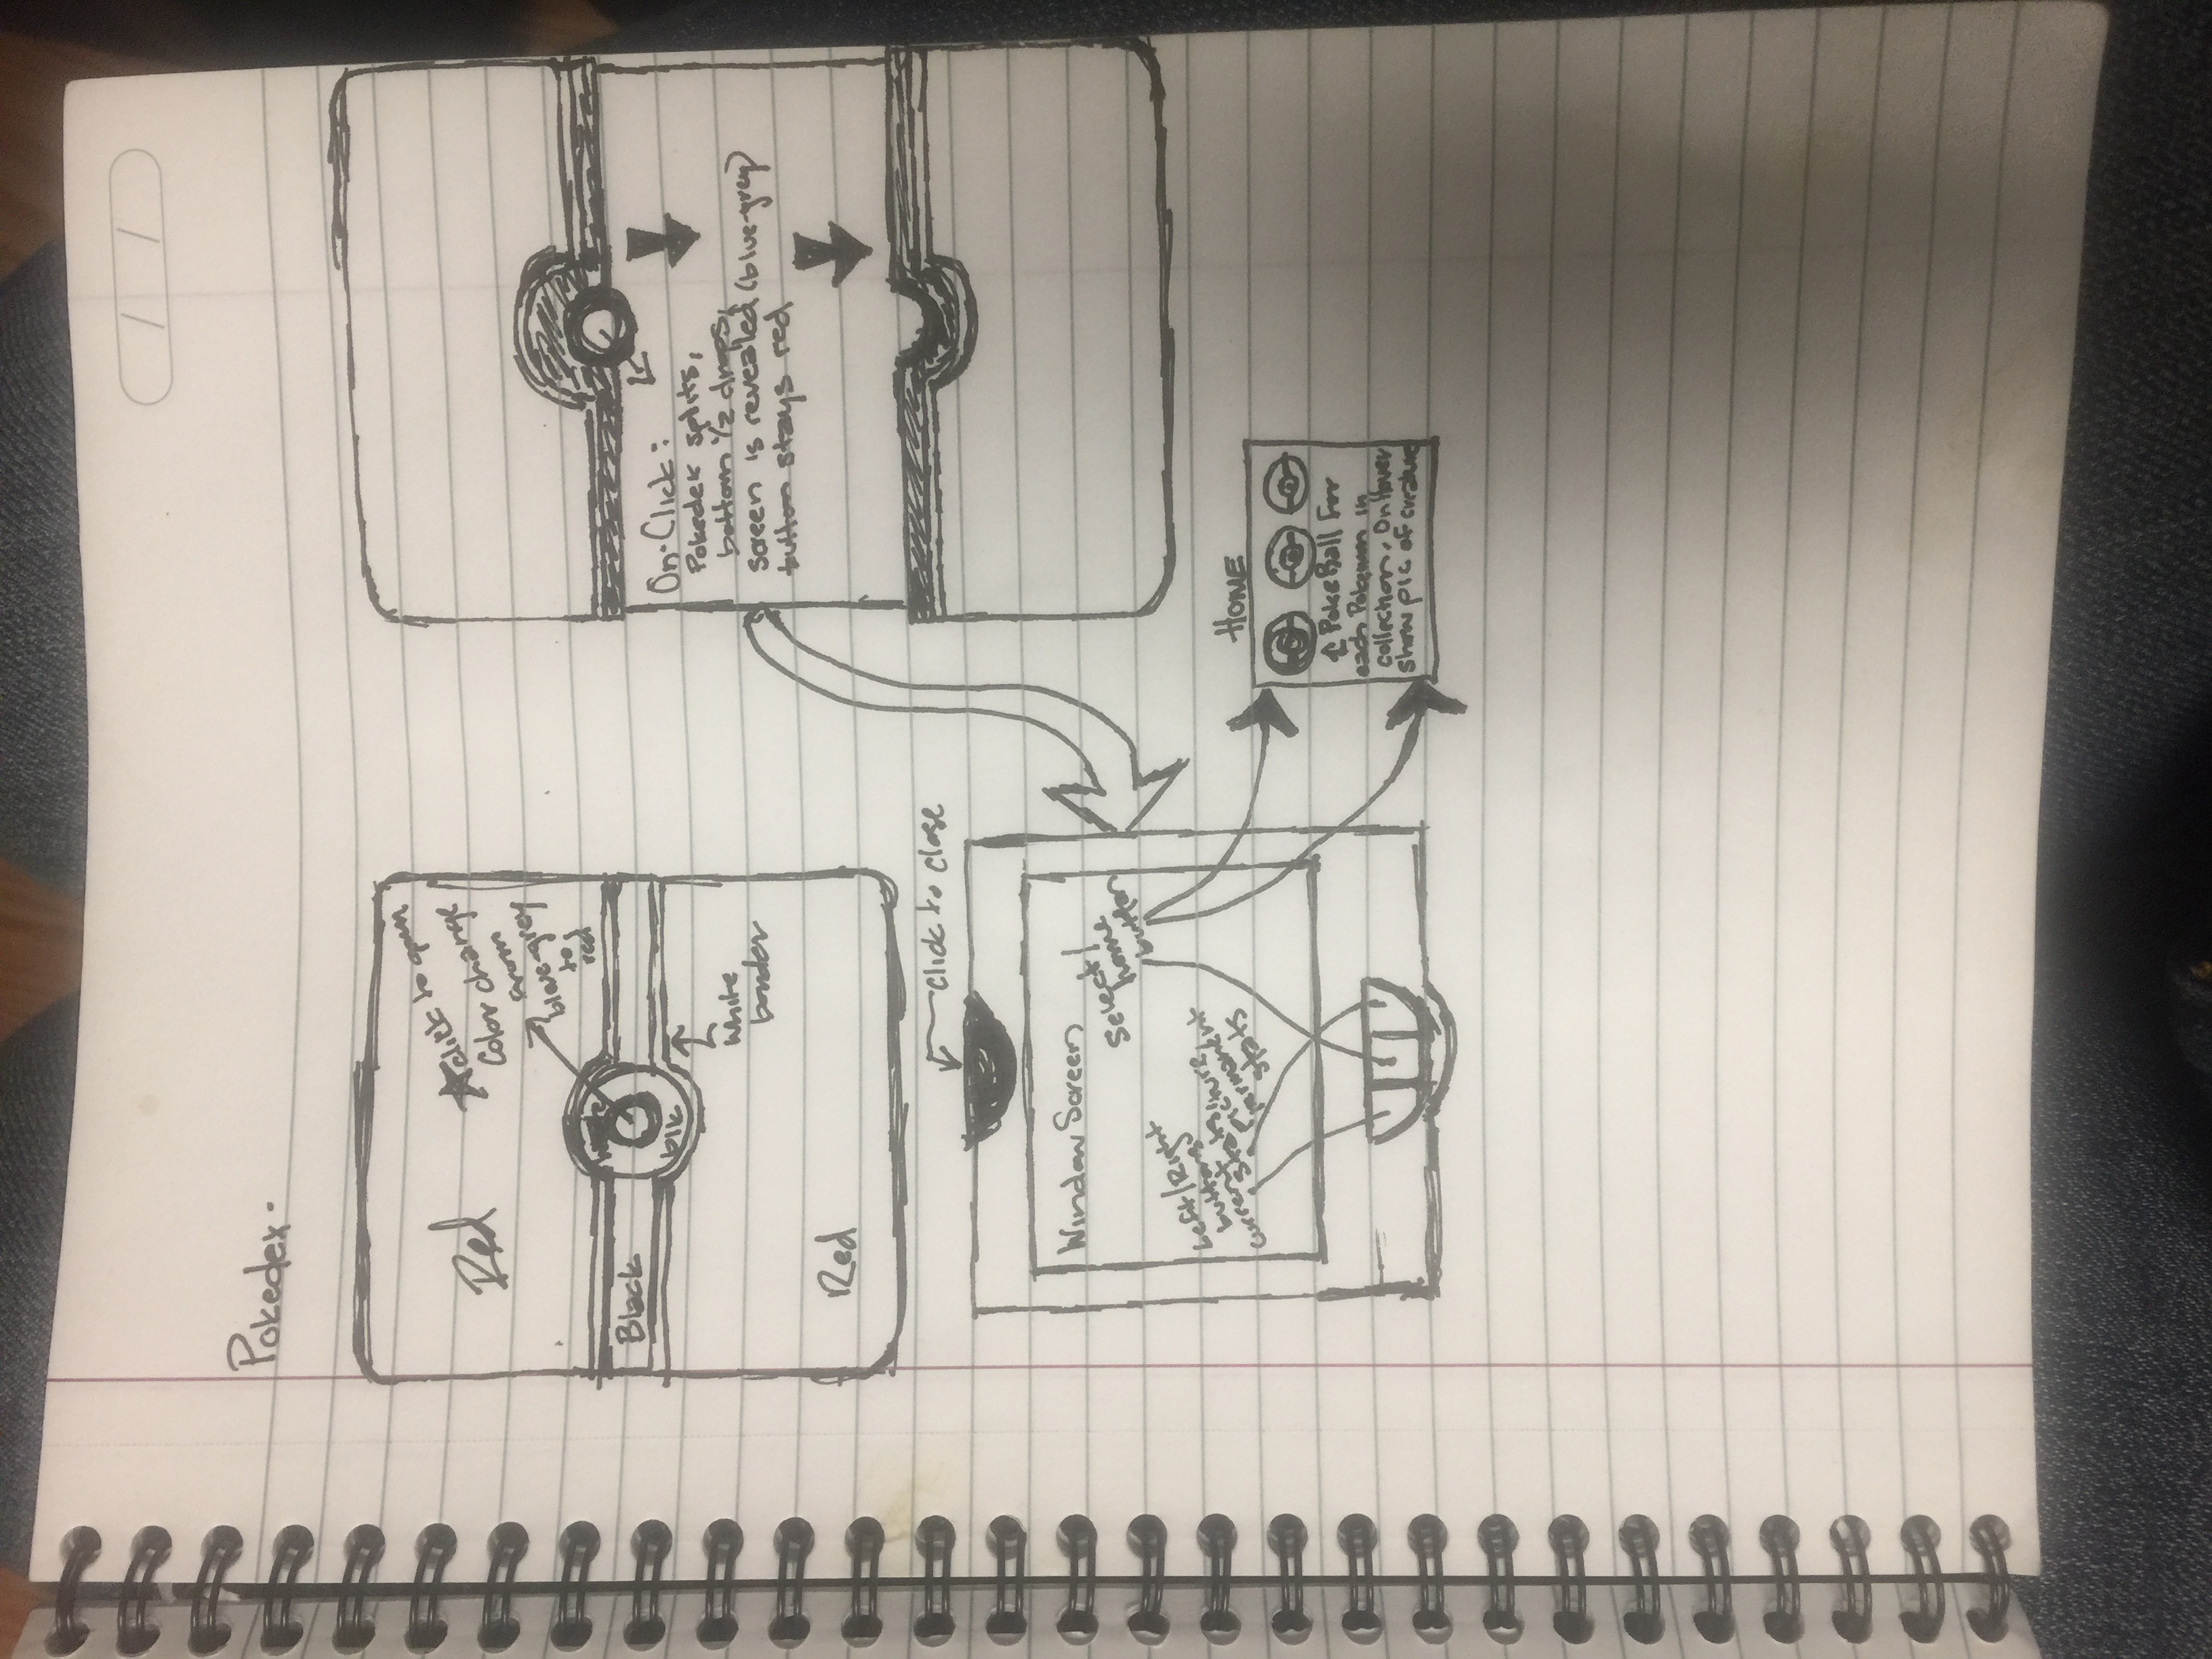 Pokedex.
Red
click to open
Color change
from
blue-grey
to
red
Black
blk
white
border
Red
On-Click:
Pokedex splits,
bottom 1/2 drops,
screen is revealed (blue-grey)
button stays red
click to close
Window Screen
Select/
home
button
Left/Right
buttons
current stats,
picture,
stats
HOME
PokeBall for
each Pokemon in
collection. On Hover
show pic of creature